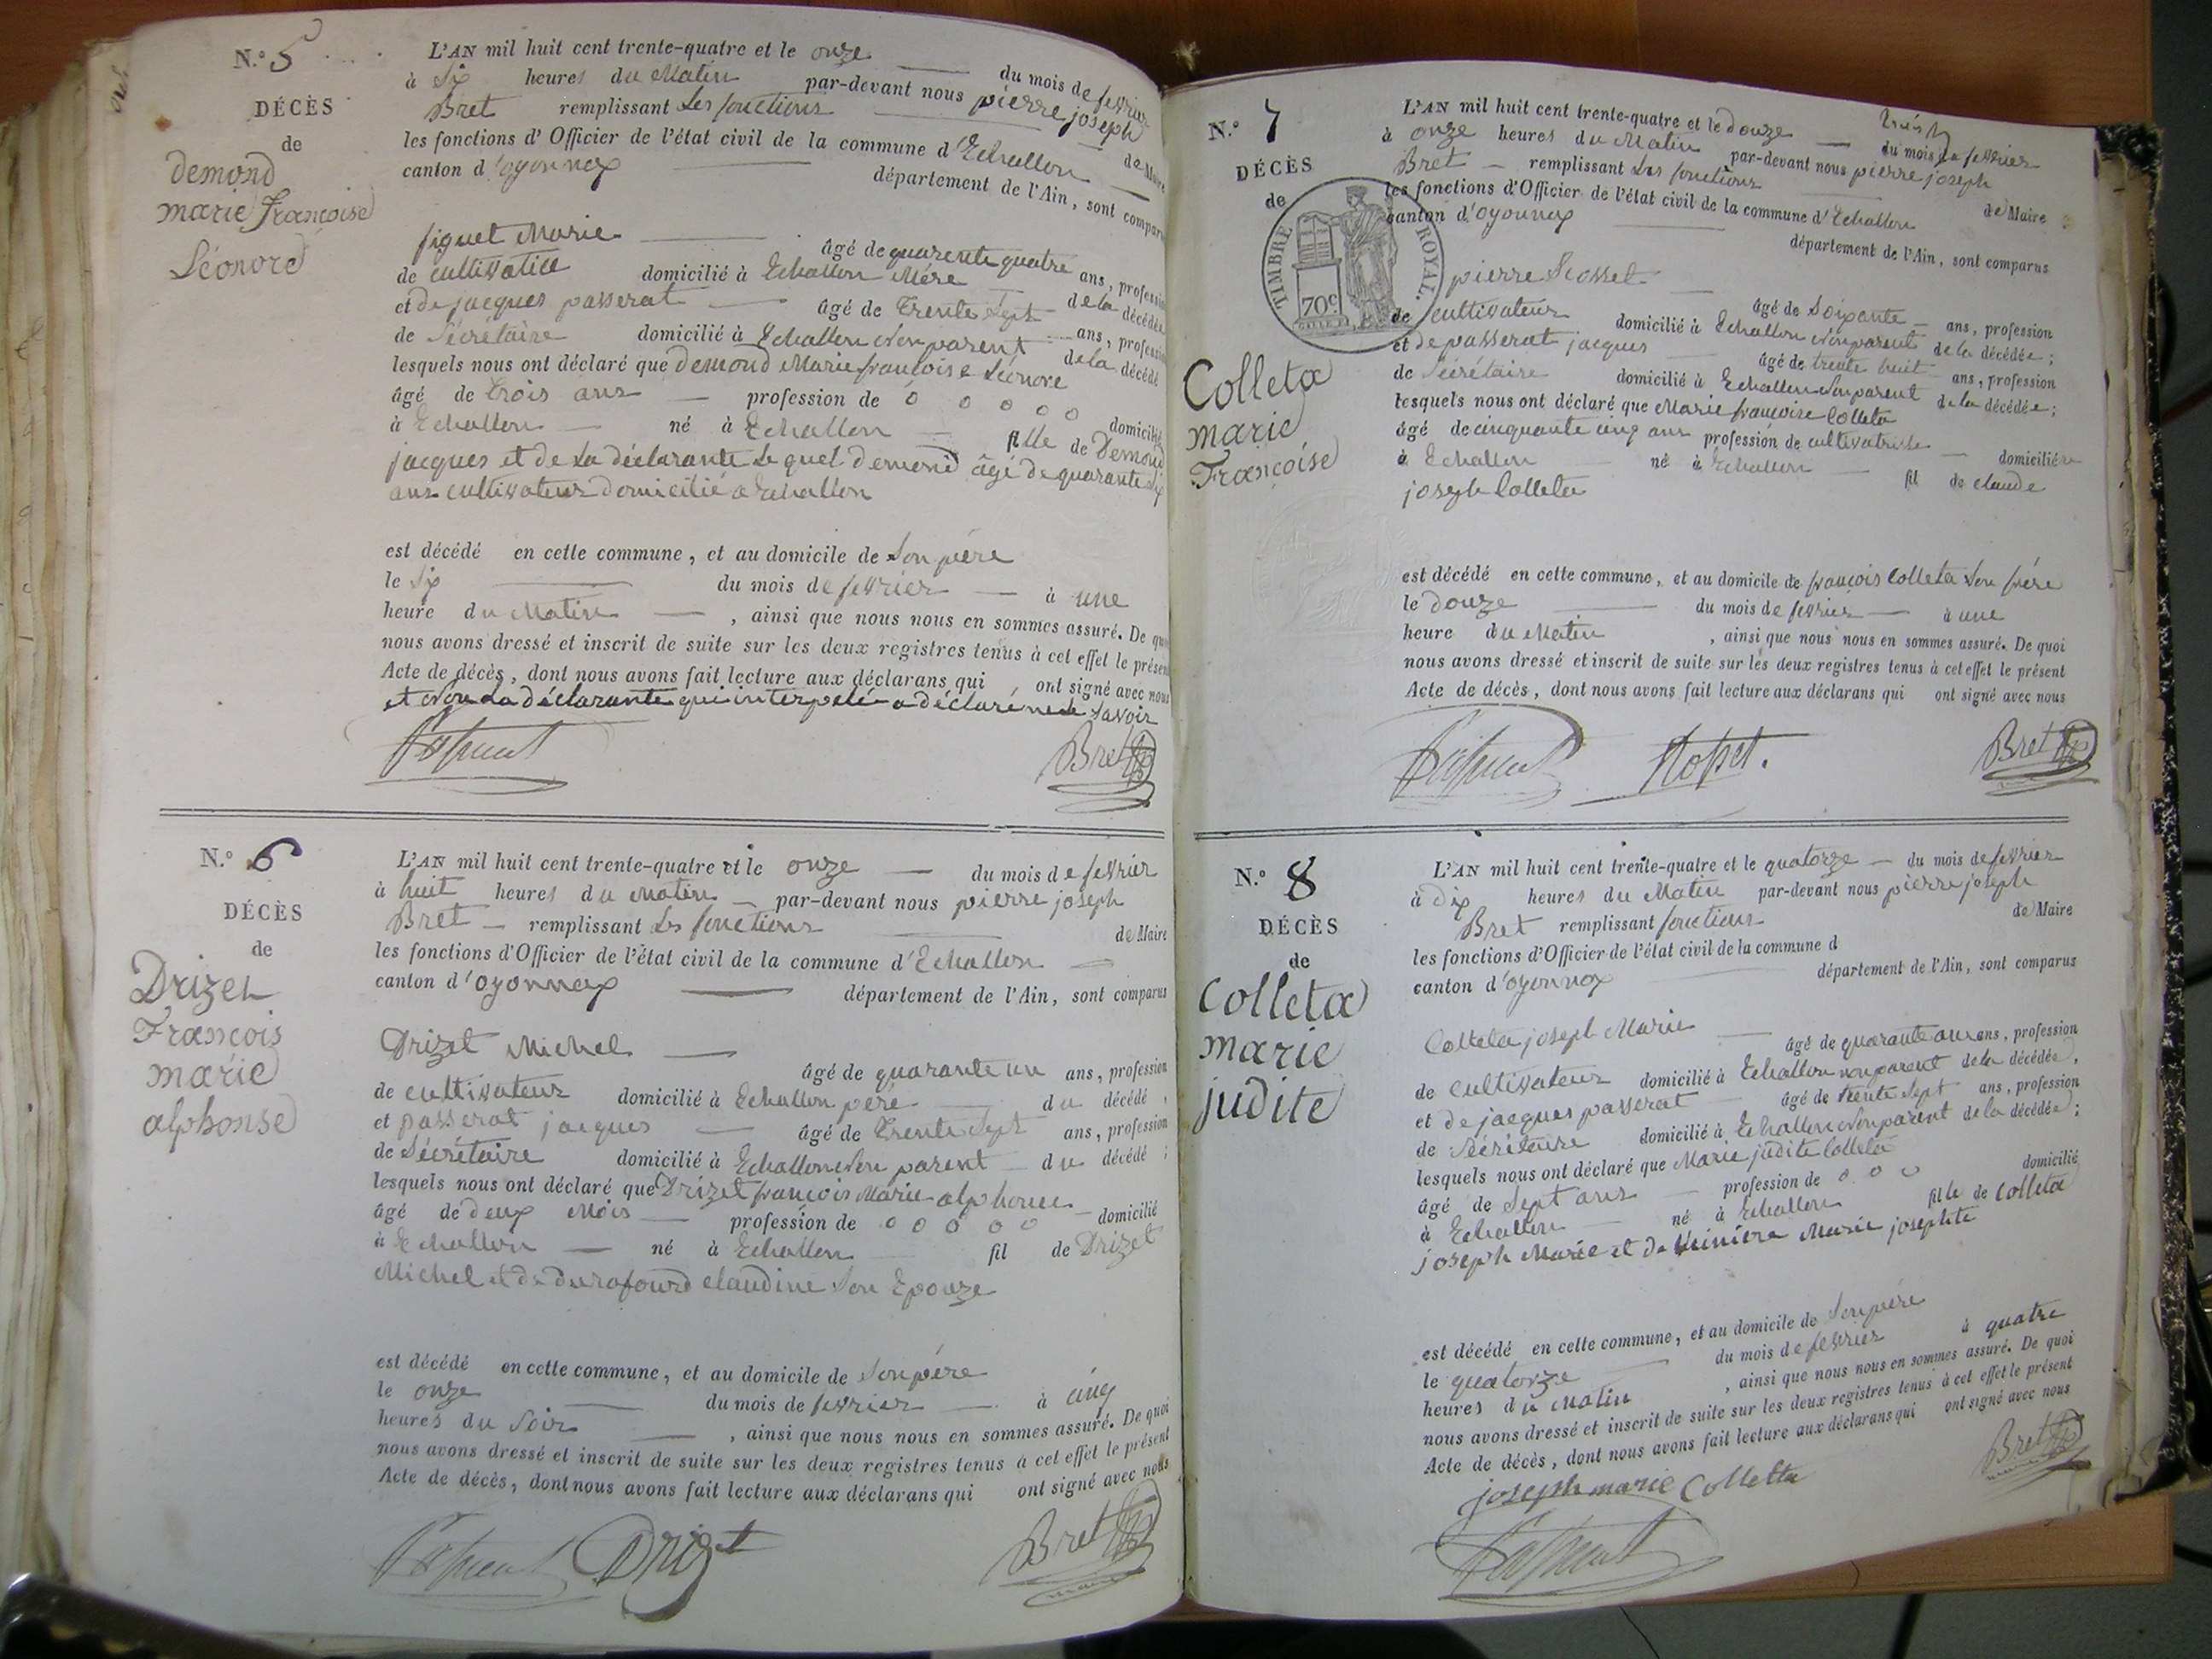 N.º 5
DÉCÈS
de
demond
marie françoise
Léonore
L'AN mil huit cent trente-quatre et le onze du mois de fevrier
à Six heures du Matin par-devant nous pierre joseph
Bret remplissant Les fonctions de Maire
les fonctions d'Officier de l'état civil de la commune d'Echallon
canton d'oyonnax département de l'Ain, sont comparus
figuet Marie âgé de quarente quatre ans, profession
de cultivatice domicilié à Echallon Mère de la décédée
et de jacques passerat âgé de Trente Sept ans, profession
de Sécrétaire domicilié à Echallon Non parent de la décédé
lesquels nous ont déclaré que demond Marie françoise Léonore
âgé de trois ans profession de o o o o o domicilié
à Echallon né à Echallon fille de Demond
jacques et de la déclarante Le quel demond âgé de quarante six
ans cultivateur domicilié a Echallon
est décédé en cette commune, et au domicile de Son père
le Six du mois de fevrier à une
heure du Matin, ainsi que nous nous en sommes assuré. De quoi
nous avons dressé et inscrit de suite sur les deux registres tenus à cet effet le présent
Acte de décès, dont nous avons fait lecture aux déclarans qui ont signé avec nous
et Non La déclarante qui interpelée a déclaré ne le Savoir
Bret
N.º 6
DÉCÈS
de
Drizet
François
marie
alphonse
L'AN mil huit cent trente-quatre et le onze du mois de fevrier
à huit heures du Matin par-devant nous pierre joseph
Bret remplissant Les fonctions de Maire
les fonctions d'Officier de l'état civil de la commune d'Echallon
canton d'oyonnax département de l'Ain, sont comparus
Drizet Michel âgé de quarante un ans, profession
de cultivateur domicilié à Echallon père du décédé,
et passerat jacques âgé de Trente Sept ans, profession
de Sécrétaire domicilié à Echallon Non parent du décédé ;
lesquels nous ont déclaré que Drizet françois Marie alphonse
âgé de deux Mois profession de o o o o o domicilié
à Echallon né à Echallon fil de Drizet
Michel et de durafourd claudine Son Epouze
est décédé en cette commune, et au domicile de Son père
le onze du mois de fevrier à cinq
heures du Soir, ainsi que nous nous en sommes assuré. De quoi
nous avons dressé et inscrit de suite sur les deux registres tenus à cet effet le présent
Acte de décès, dont nous avons fait lecture aux déclarans qui ont signé avec nous
Drizet Bret
N.º 7
DÉCÈS
de
TIMBRE ROYAL.
70c
Colleta
marie
Françoise
L'AN mil huit cent trente-quatre et le douze du mois de fevrier
à onze heures du Matin par-devant nous pierre joseph
Bret remplissant Les fonctions de Maire
les fonctions d'Officier de l'état civil de la commune d'Echallon
canton d'oyonnax département de l'Ain, sont comparus
pierre âgé de Soixante ans, profession
de cultivateur domicilié à Echallon Non parent de la décédée ;
et de passerat jacques âgé de trente huit ans, profession
de Sécrétaire domicilié à Echallon Non parent de la décédée ;
lesquels nous ont déclaré que Marie françoise Colleta
âgé de cinquante cinq ans profession de cultivatrice domiciliée
à Echallon né à Echallon fil de claude
joseph Colleta
est décédé en cette commune, et au domicile de françois Colleta Son frére
le Douze du mois de fevrier à une
heure du Matin, ainsi que nous nous en sommes assuré. De quoi
nous avons dressé et inscrit de suite sur les deux registres tenus à cet effet le présent
Acte de décès, dont nous avons fait lecture aux déclarans qui ont signé avec nous
Bret
N.º 8
DÉCÈS
de
Colleta
marie
judite
L'AN mil huit cent trente-quatre et le quatorze du mois de fevrier
à dix heures du Matin par-devant nous pierre joseph
Bret remplissant fonctions de Maire
les fonctions d'Officier de l'état civil de la commune d
canton d'oyonnax département de l'Ain, sont comparus
Colleta joseph Marie âgé de quarante ans, profession
de Cultivateur domicilié à Echallon non parent de la décédée,
et de jacques passerat âgé de trente Sept ans, profession
de Sécrétaire domicilié à Echallon Non parent de la décédée ;
lesquels nous ont déclaré que Marie judite Colleta
âgé de Sept ans profession de o o o domicilié
à Echallon né à Echallon fille de Colleta
joseph Marie et de Marie josephte
est décédé en cette commune, et au domicile de Son père
le quatorze du mois de fevrier à quatre
heures du Matin, ainsi que nous nous en sommes assuré. De quoi
nous avons dressé et inscrit de suite sur les deux registres tenus à cet effet le présent
Acte de décès, dont nous avons fait lecture aux déclarans qui ont signé avec nous
joseph marie Colletta Bret